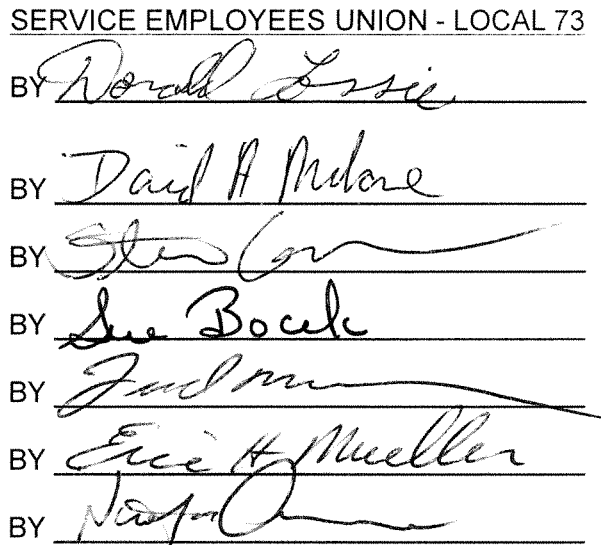 SERVICE EMPLOYEES UNION - LOCAL 73
BY Donald Lossie
BY David A Malone
BY Steve
BY Sue Bocek
BY
BY Eric H Mueller
BY